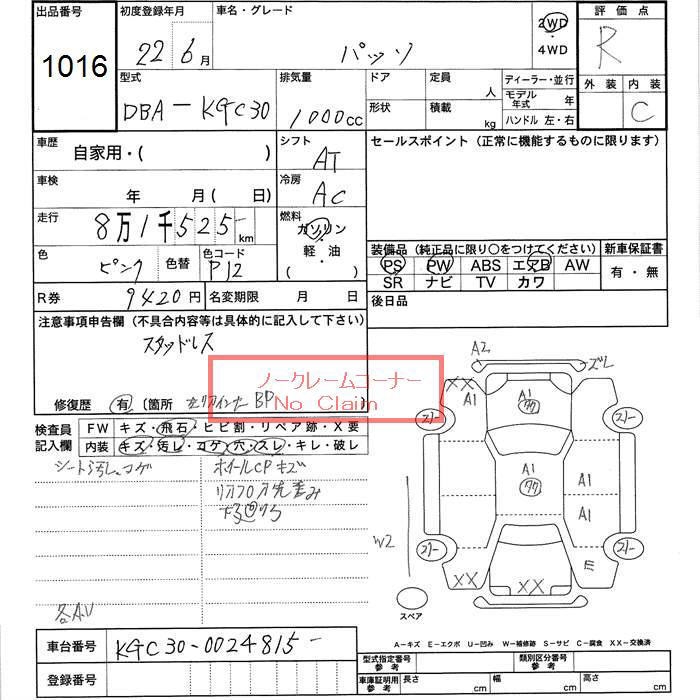 出品番号 初度登録年月 車名・グレード 評価点
1016 22 6月 パッソ 2WD ・ 4WD R
外装 内装
C
型式 排気量 ドア 定員 人 ディーラー・並行
DBA-KGC30 1000cc 形状 積載 kg モデル年式 年
ハンドル 左・右
車歴 自家用・( ) シフト AT セールスポイント (正常に機能するものに限ります)
車検 年 月( 日) 冷房 AC
走行 8万1千525- km 燃料 ガソリン・軽・油 ( )
色 ピンク 色替 色コード P12
装備品 (純正品に限り○をつけてください) 新車保証書
PS PW ABS エアB AW 有・無
SR ナビ TV カワ
R券 9420円 名変期限 月 日 後日品
注意事項申告欄 (不具合内容等は具体的に記入して下さい)
スタッドレス
ノークレームコーナー
No Claim
修復歴 有 〔箇所 BP
検査員記入欄 FW キズ・飛石・ヒビ割・リペア跡・X要
内装 キズ・汚レ・コゲ・穴・スレ・キレ・破レ
シート汚レ、コゲ ホイールCPキズ
A2 ズレ
XX A1 A1
21- 21-
A1 A1
A1
W2
21- 21-
XX XX E
スペア
車台番号 KGC30-0024815-
登録番号
A-キズ E-エクボ U-凹み W-補修跡 S-サビ C-腐食 XX-交換済
型式指定番号 参考 類別区分番号 参考
車庫証明用 参考 長さ cm 幅 cm 高さ cm